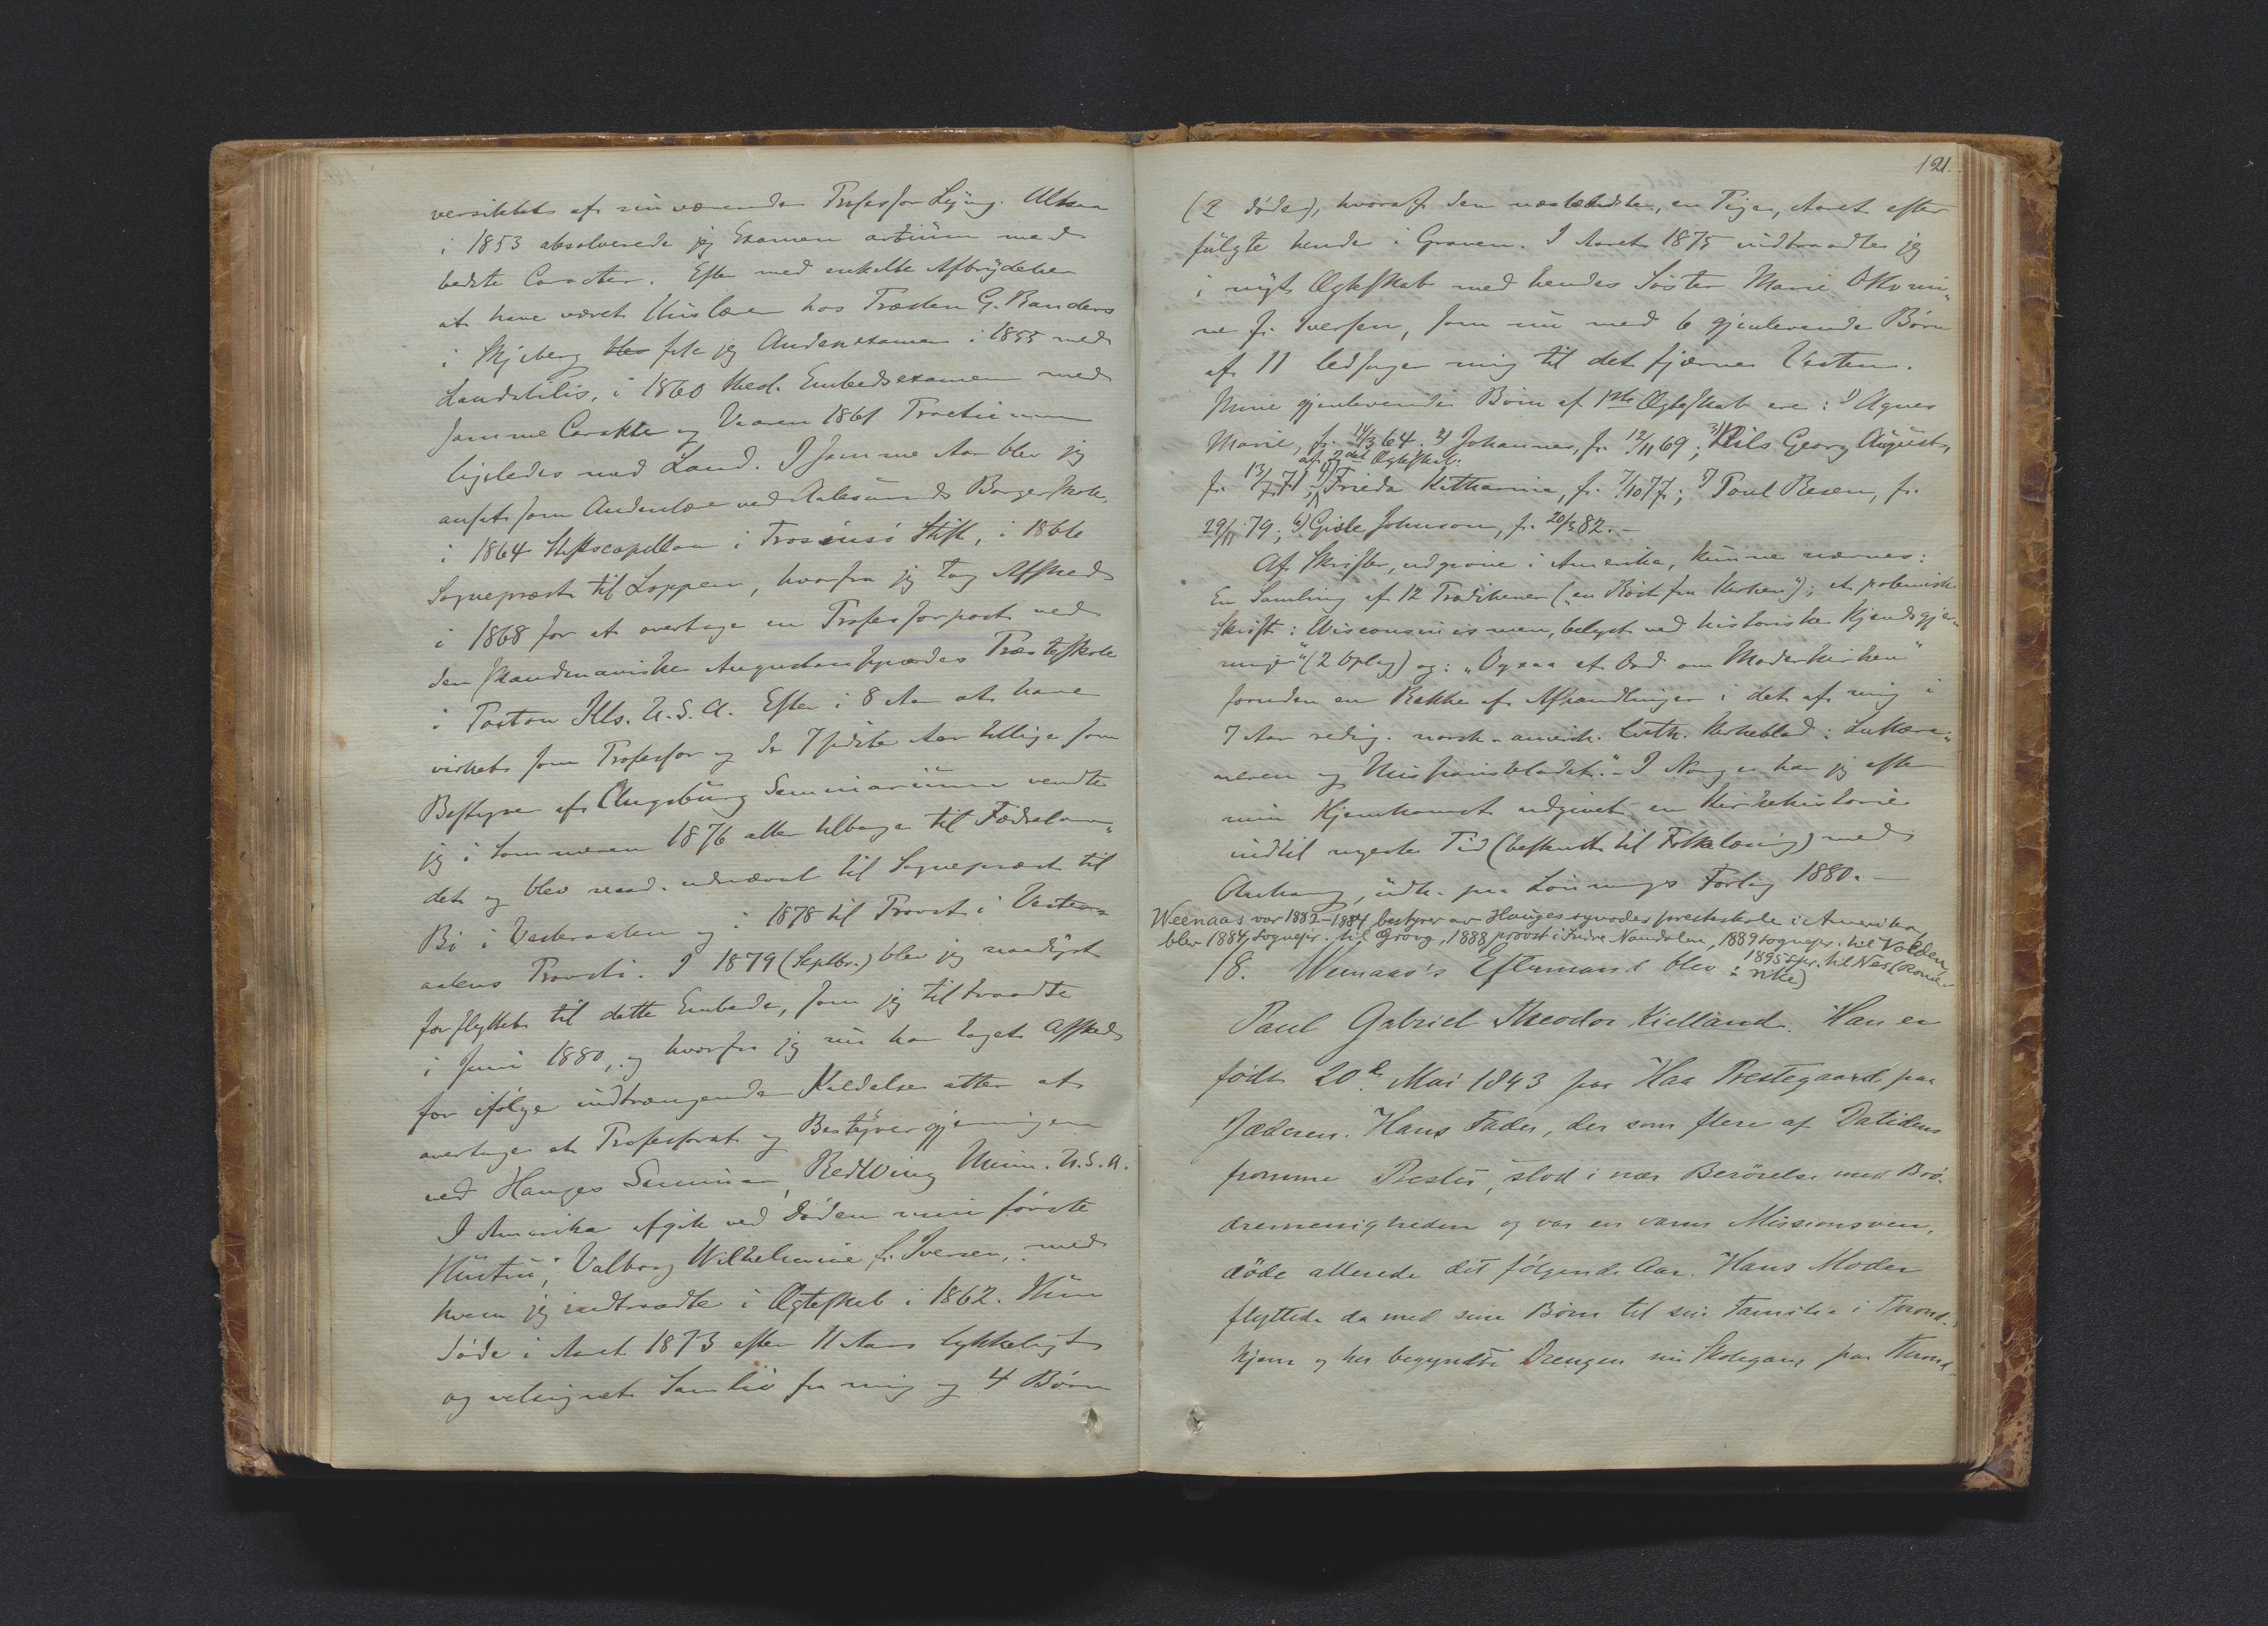 versitetet af nuværende Professor Lyng. Altsaa
i 1853 absolverede jeg Examen artium med
bedste Caracter. Efter med enkelte Afbrydelser
at have været Huslærer hos Præsten G. Randers
i Skjeberg blev fik jeg Andenexamen i 1855 med
Laudabilis, i 1860 theol. Embedsexamen med
samme Carakter og Vaaren 1861 Practicum
ligeledes med Laud. I samme Aar blev jeg
ansat som Andenlærer ved Aalesunds Borgerskole,
i 1864 Stiftscapellan i Tromsö Stift, i 1866
Sognepræst til Loppen, hvorfra jeg tog Afsked
i 1868 for at overtage en Professorpost ved
den skandinaviske Augustanasynodes Præsteskole
i Paxton Ills. U.S.A. Efter i 8 Aar at have
virket som Professor og de 7 sidste Aar tillige som
Bestyrer af Augsburg Seminarium vendte
jeg i Sommeren 1876 atter tilbage til Fædrelan„
det og blev naad. udnævnt til Sognepræst til
Bö i Vesteraalen og i 1878 til Provst i Vester-
aalens Provsti. I 1879 (Septbr.) blev jeg naadigst
forflyttet til dette Embede, som jeg tiltraadte
i Juni 1880, og hvorfra jeg nu har taget Afsked
for ifølge indtrængende Kaldelse atter at
overtage et Professorat og Bestyrergjerningen
ved Hauges Seminar, RedWing Minn. U.S.A.
I Amerika afgik ved Döden min förste
Hustru, Valborg Wilhelmine f. Iversen, med
hvem jeg indtraadte i Ægteskab i 1862. Hun
döde i Aaret 1873 efter 11 Aars lykkeligt
og velsignet Samliv fra mig og 4 Börn
121.
(2 döde), hvoraf den næstældste, en Pige, Aaret efter
fulgte hende i Graven. I Aaret 1875 indtraadte jeg
i nyt Ægteskab med hendes Söster Marie
ne f. Iversen, som nu med 6 gjenlevende Börn
af 11 ledsager mig til det fjerne Vesten.
Mine gjenlevende Börn af 1ste Ægteskab ere: 1) Agnes
Marie, f. 14/3 64. 2) Johannes, f. 12/11 69; 3) Nils Georg August,
af 2det Ægteskab:
f. 13/7 71; 4) Frieda Katharina, f. 7/10 77; 5) Poul Resen, f.
29/11 79; 6) Gisle Johnson, f. 20/3 82. –
Af Skrifter, udgivne i Amerika, kunne nævnes:
En Samling af 12 Prædikener („en Röst fra Kirken"); et polemisk
Skrift: Wisconsinismen, belyst ved historiske Kjendsgjer„
ninger" (2 Oplag) og: „Ogsaa et Ord om Moderkirken"
foruden en Række af Afhandlinger i det af mig i
7 Aar redig. norsk-amerik. luth. Kirkeblad: Luthera„
neren og Missionsbladet." – I Norge har jeg efter
min Hjemkomst udgivet en Kirkehistorie
indtil nyeste Tid (bestemt til Folkelæsning) med
Anhang, udk. paa Lönnings Forlag 1880. –
Weenaas var 1882–1884 bestyrer av Hauges synodes presteskole i Amerika,
blev 1884 sognepr. til Grong, 1888 provst i Indre Namdalen, 1889 sognepr. til Volden,
1895 spr. til Nes (Rome-
rike)
18. Weenaas's Eftermand blev:
Paul Gabriel Theodor Kielland. Han er
födt 20de Mai 1843 paa Haa Prestegaard paa
Jæderen. Hans Fader, der som flere af Datidens
fromme Prester, stod i nær Berörelse med Brö-
dremenigheden og var en varm Missionsven,
döde allerede det fölgende Aar. Hans Moder
flyttede da med sine Börn til sin Familie i Thrond-
hjem og her begyndte Drengen sin Skolegang paa Thrond-